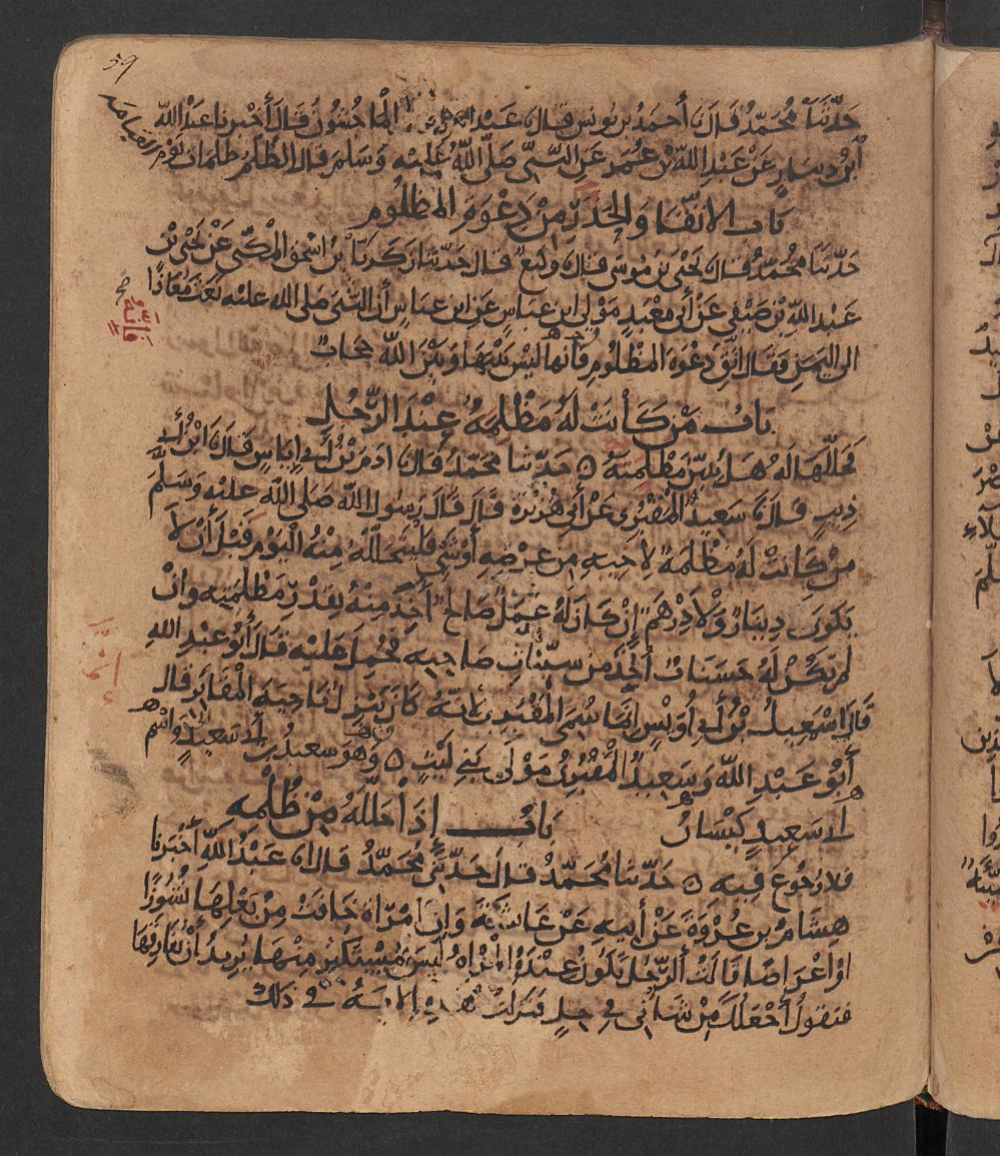 59
حدثنا محمد قال نا أحمد بن يونس قال نا عبد العزيز الماجشون قال أخبرنا عبد الله
ابن دينار عن عبد الله بن عمر عن النبي صلى الله عليه وسلم قال الظلم ظلمات يوم القيامة
باب الاتقا والحذر من دعوة المظلوم
حدثنا محمد قال نا يحيى بن موسى قال نا وكيع قال حدثنا زكريا بن اسحق المكي عن يحيى بن
عبد الله بن صيفي عن أبي معبد مولى ابن عباس عن ابن عباس أن النبي صلى الله عليه بعث معاذا
الى اليمن فقال اتق دعوة المظلوم فانها ليس بينها وبين الله حجاب
باب من كانت له مظلمة عند الرجل
فحللها له هل يبين مظلمته ه حدثنا محمد قال نا ادم بن أبي إياس قال نا ابن أبي
ذيب قال نا سعيد المقبري عن أبي هريرة قال قال رسول الله صلى الله عليه وسلم
من كانت له مظلمة لاخيه من عرضه أو شي فليتحلله منه اليوم قبل أن لا
يكون دينار ولا درهم إن كان له عمل صالح أخذ منه بقدر مظلمته وان
لم تكن له حسنات أخذ من سيئات صاحبه فحمل عليه قال أبو عبد الله
قال إسمعيل بن أبي أويس انما سمي المقبري لانه كان ينزل ناحية المقابر قال
أبو عبد الله وسعيد المقبري هو مولى بني ليث ه وهو سعيد بن أبي سعيد واسم
أبي سعيد كيسان باب إذا حلله من ظلمه
فلا رجوع فيه ه حدثنا محمد قال حدثني محمد قال نا عبد الله أخبرنا
هشام بن عروة عن أبيه عن عائشة وإن امراة خافت من بعلها نشوزا
او اعراضا قالت الرجل يكون عنده المراة ليس بمستكثر منها يريد أن يفارقها
فتقول أجعلك من شاني في حل فنزلت هذه الاية في ذلك